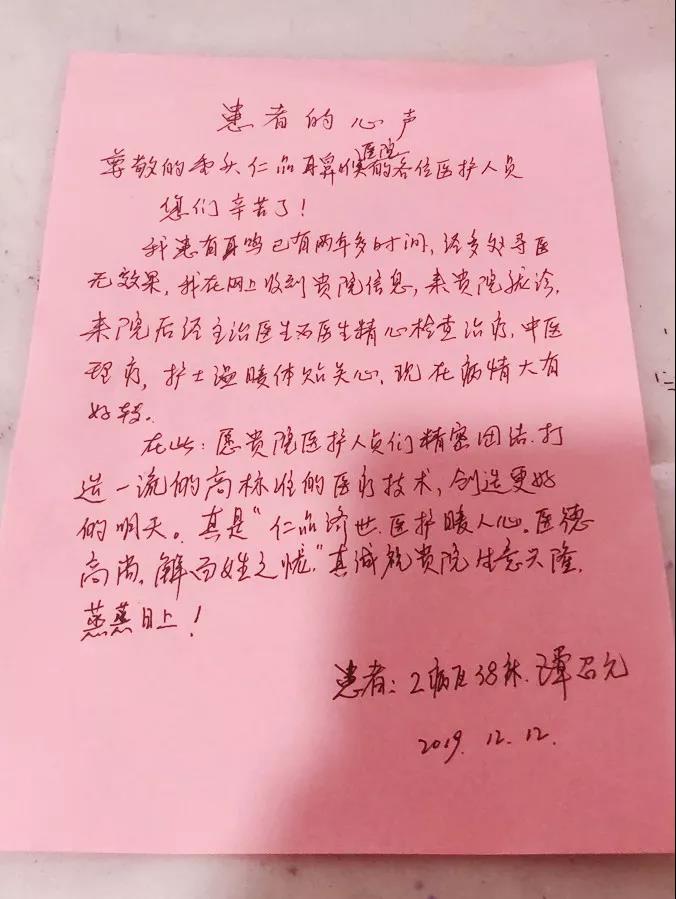 患者的心声
尊敬的重庆仁品耳鼻喉医院的各位医护人员
您们辛苦了！
我患有耳鸣已有两年多时间，经多处寻医
无效果，我在网上收到贵院信息，来贵院就诊，
来院后经主治医生石医生精心检查治疗，中医
理疗，护士温暖体贴关心，现在病情大有
好转。
在此：愿贵院医护人员们精密团结，打
造一流的高标准的医疗技术，创造更好
的明天。真是“仁品济世，医护暖人心。医德
高尚，解百姓之忧”真诚祝贵院生意兴隆，
蒸蒸日上！
患者：2病区38床，谭召元
2019. 12. 12.